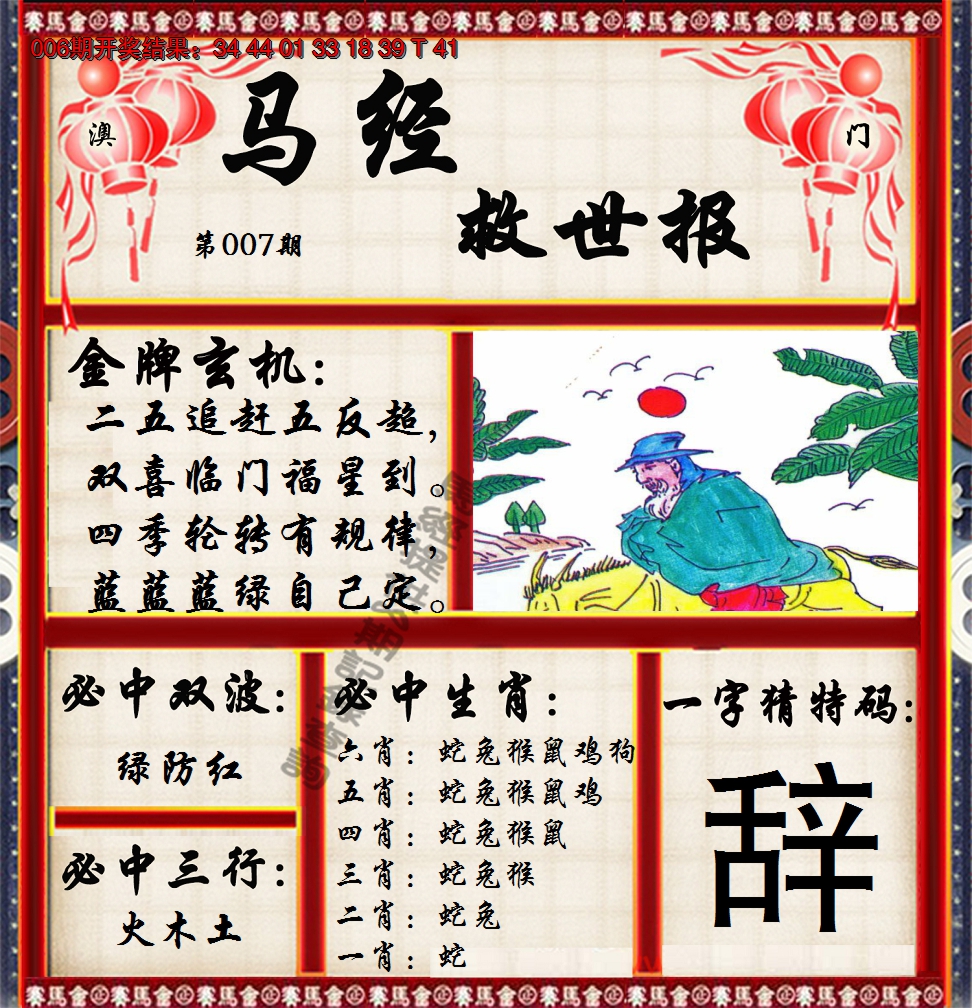 006期开奖结果：34 44 01 33 18 39 T 41
澳
门
马经
救世报
第007期
金牌玄机：
二五追赶五反超，
双喜临门福星到。
四季轮转有规律，
蓝蓝蓝绿自己定。
必中双波：
绿防红
必中三行：
火木土
必中生肖：
六肖：蛇兔猴鼠鸡狗
五肖：蛇兔猴鼠鸡
四肖：蛇兔猴鼠
三肖：蛇兔猴
二肖：蛇兔
一肖：蛇
一字猜特码：
辞